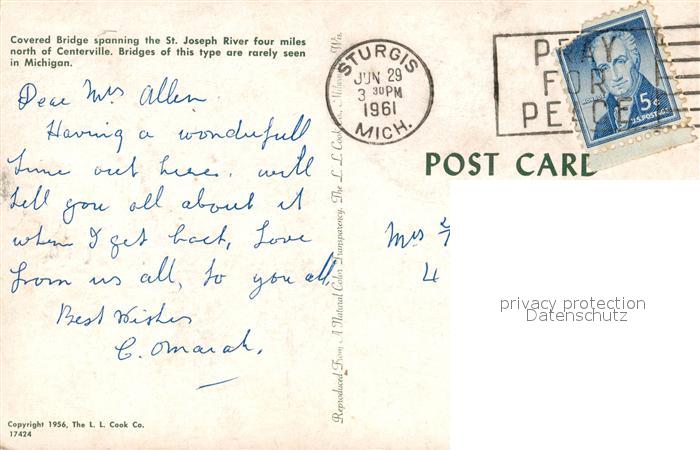 Covered Bridge spanning the St. Joseph River four miles
north of Centerville. Bridges of this type are rarely seen
in Michigan.
Dear Mrs Allen.
Having a wonderfull
time out here. will
tell you all about it
when I get back, Love
from us all, to you all,
Best Wishes
C.
Copyright 1956, The L. L. Cook Co.
17424
Reproduced From A Natural Color Transparency. The L. L. Cook Co., Milwaukee, Wis.
STURGIS
JUN 29
3 30PM
1961
MICH.
PRAY
FOR
PEACE
5¢
U.S. POSTAGE
POST CARD
Mrs
4
privacy protection
Datenschutz